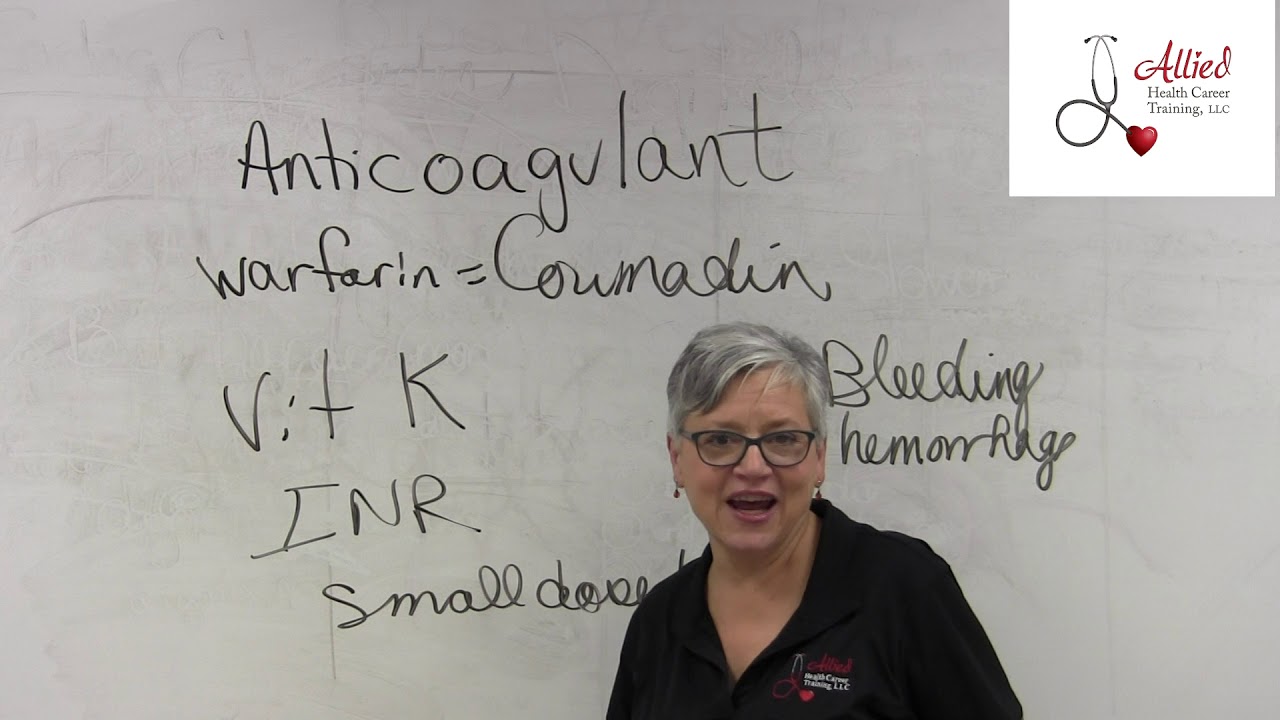 Allied
Health Career
Training, LLC
Anticoagulant
warfarin = Coumadin
Vit K
Bleeding
hemorrhage
INR
small dose
Allied
Health Career
Training, LLC